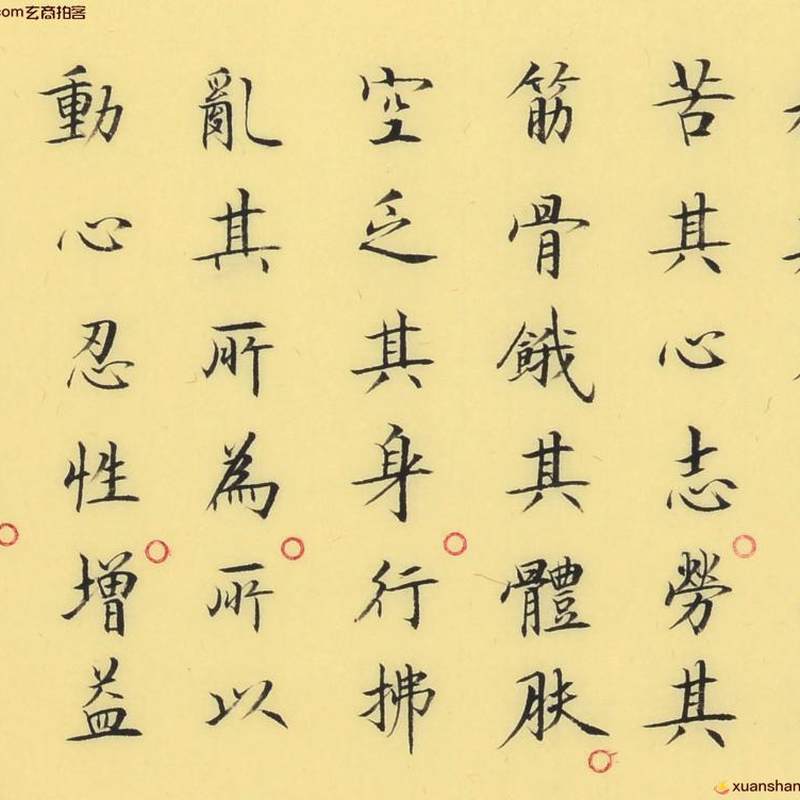 苦其心志勞其
筋骨餓其體膚
空乏其身行拂
亂其所為所以
動心忍性增益
com玄商拍客
xuanshan